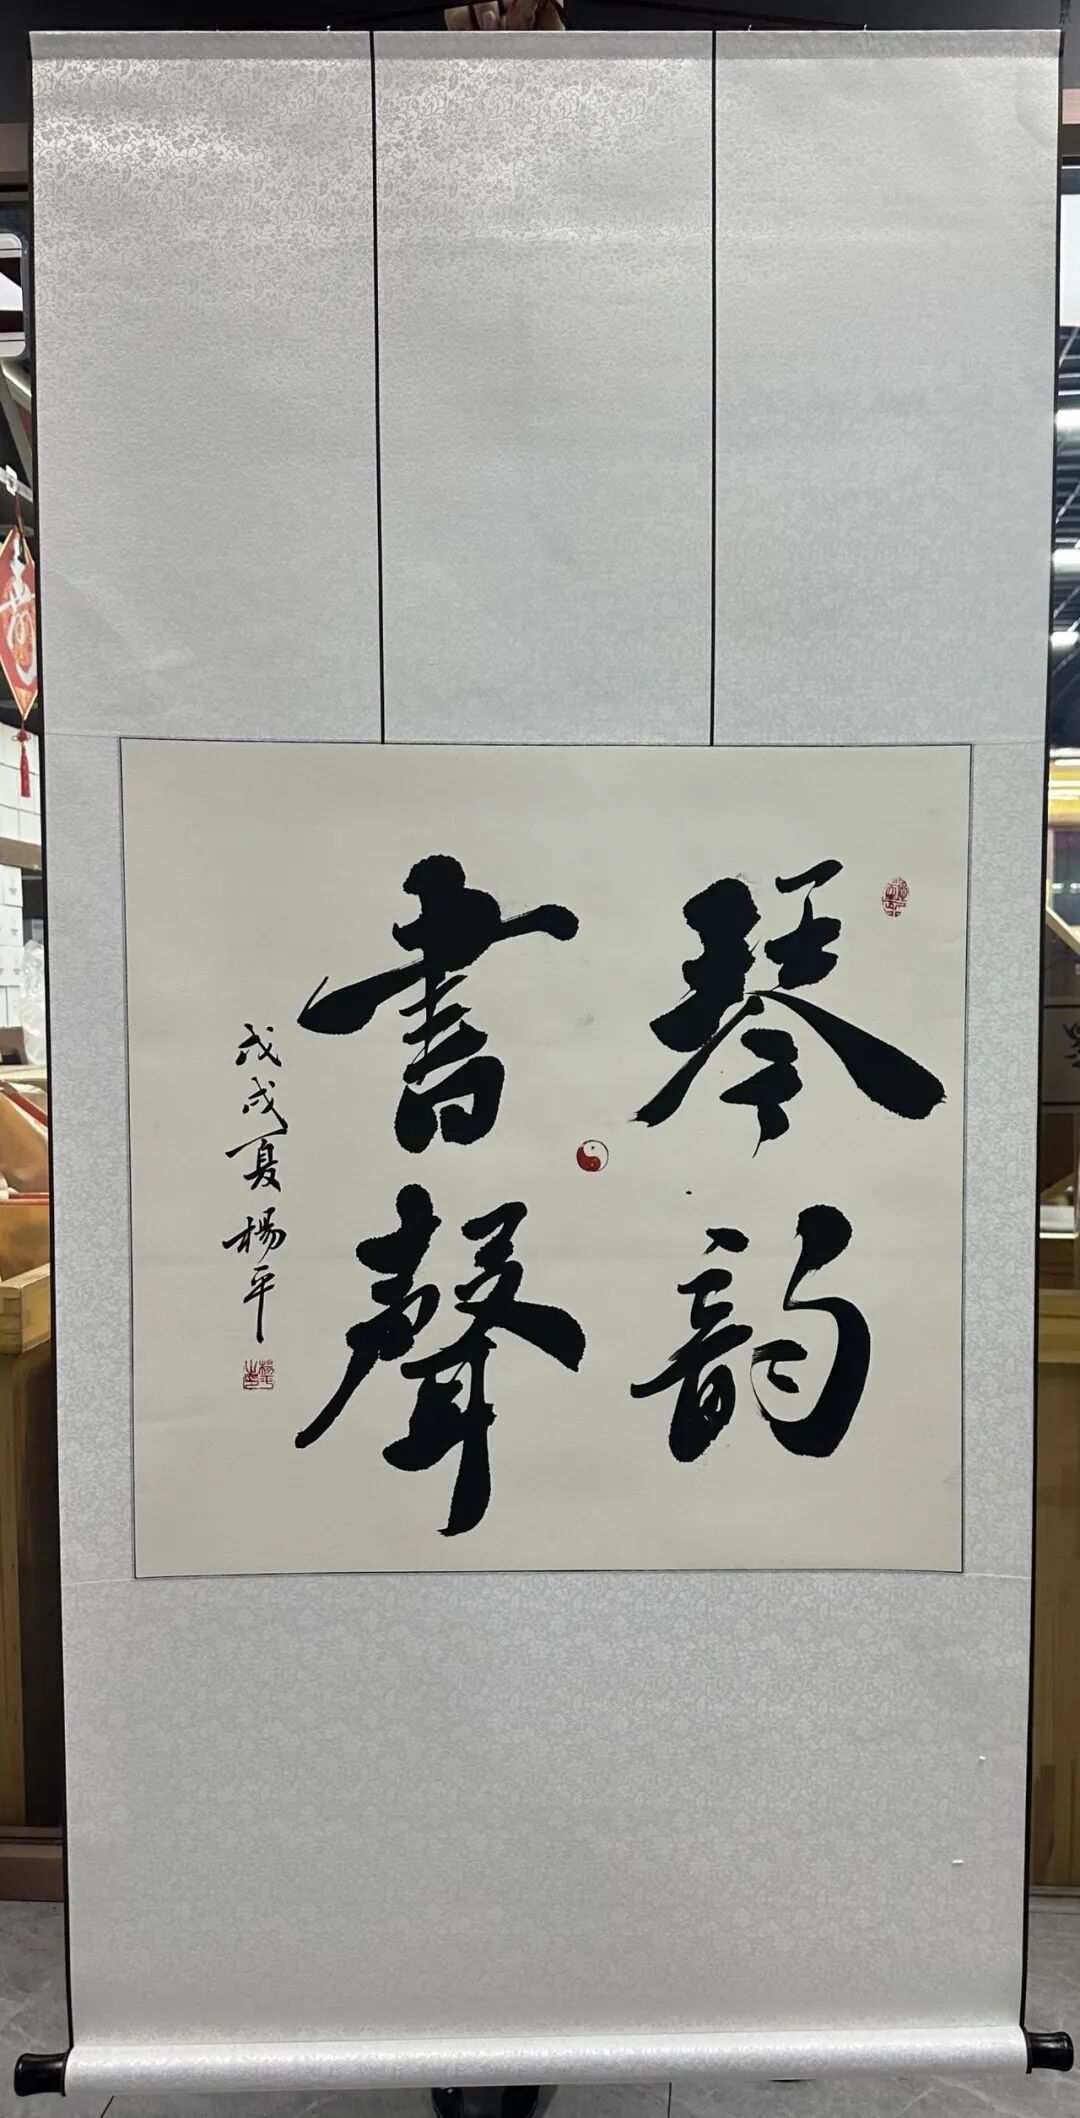 琴韵
書聲
戊戌夏 楊平